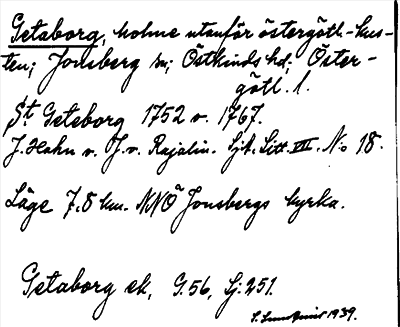 Getaborg, holme utanför östergötl-kus-
ten; Jonsberg sn; Östkinds hd; Öster-
götl. l.
St. Geteborg 1752 v. 1767.
J. Hahn v. J. v. Rajalin. Sjk. Litt. VII. No 18.
Läge 7,8 km. NNÖ Jonsbergs kyrka.
Getaborg ek, G.56, Sj:251.
1939.